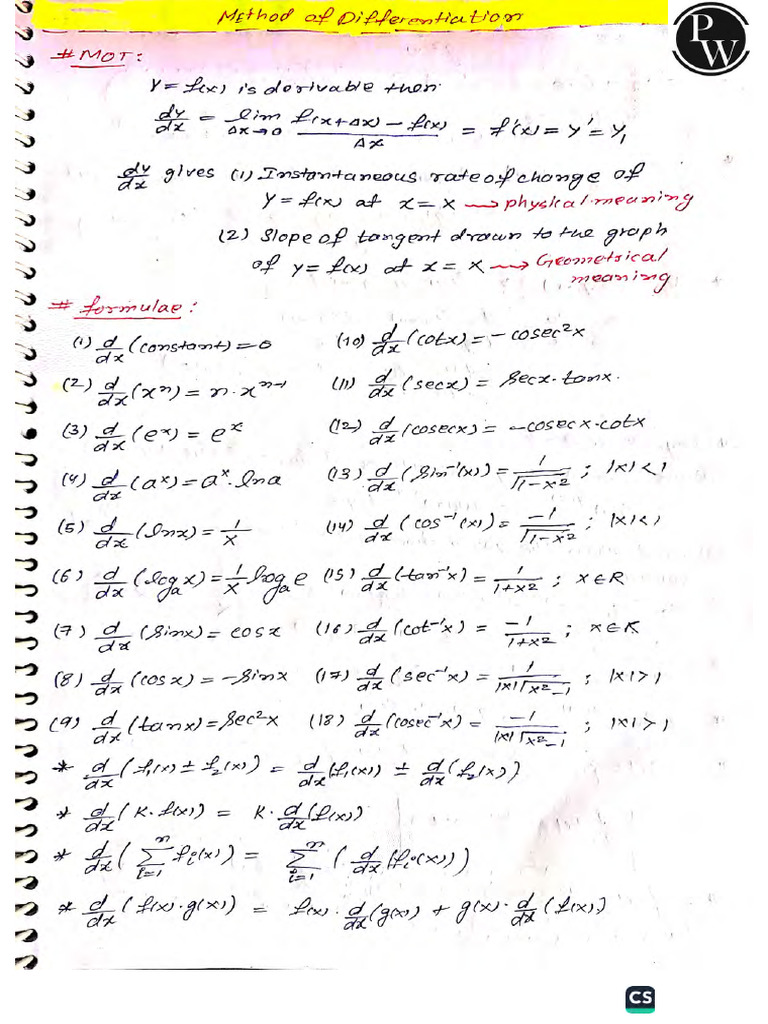 Method of Differentiation
PW
# MOT:
y = f(x) is derivable then
dy/dx = lim Δx→0 (f(x+Δx) − f(x))/Δx = f'(x) = y' = y₁
dy/dx gives (1) Instantaneous rate of change of
y = f(x) at x = x → physical meaning
(2) Slope of tangent drawn to the graph
of y = f(x) at x = x → Geometrical
meaning
# formulae:
(1) d/dx (constant) = 0
(2) d/dx (xⁿ) = n·xⁿ⁻¹
(3) d/dx (eˣ) = eˣ
(4) d/dx (aˣ) = aˣ·ln a
(5) d/dx (lnx) = 1/x
(6) d/dx (logₐx) = 1/x logₐe
(7) d/dx (sinx) = cosx
(8) d/dx (cosx) = −sinx
(9) d/dx (tanx) = sec²x
(10) d/dx (cotx) = −cosec²x
(11) d/dx (secx) = secx·tanx.
(12) d/dx (cosecx) = −cosecx·cotx
(13) d/dx (sin⁻¹(x)) = 1/√(1−x²) ; |x|<1
(14) d/dx (cos⁻¹(x)) = −1/√(1−x²) ; |x|<1
(15) d/dx (tan⁻¹x) = 1/(1+x²) ; x∈R
(16) d/dx (cot⁻¹x) = −1/(1+x²) ; x∈R
(17) d/dx (sec⁻¹x) = 1/(|x|√(x²−1)) ; |x|>1
(18) d/dx (cosec⁻¹x) = −1/(|x|√(x²−1)) ; |x|>1
* d/dx (f₁(x) ± f₂(x)) = d/dx (f₁(x)) ± d/dx (f₂(x))
* d/dx (K·f(x)) = K·d/dx (f(x))
* d/dx (∑ⁿᵢ₌₁ fᵢ(x)) = ∑ⁿᵢ₌₁ (d/dx (fᵢ(x)))
* d/dx (f(x)·g(x)) = f(x)·d/dx (g(x)) + g(x)·d/dx (f(x))
CS